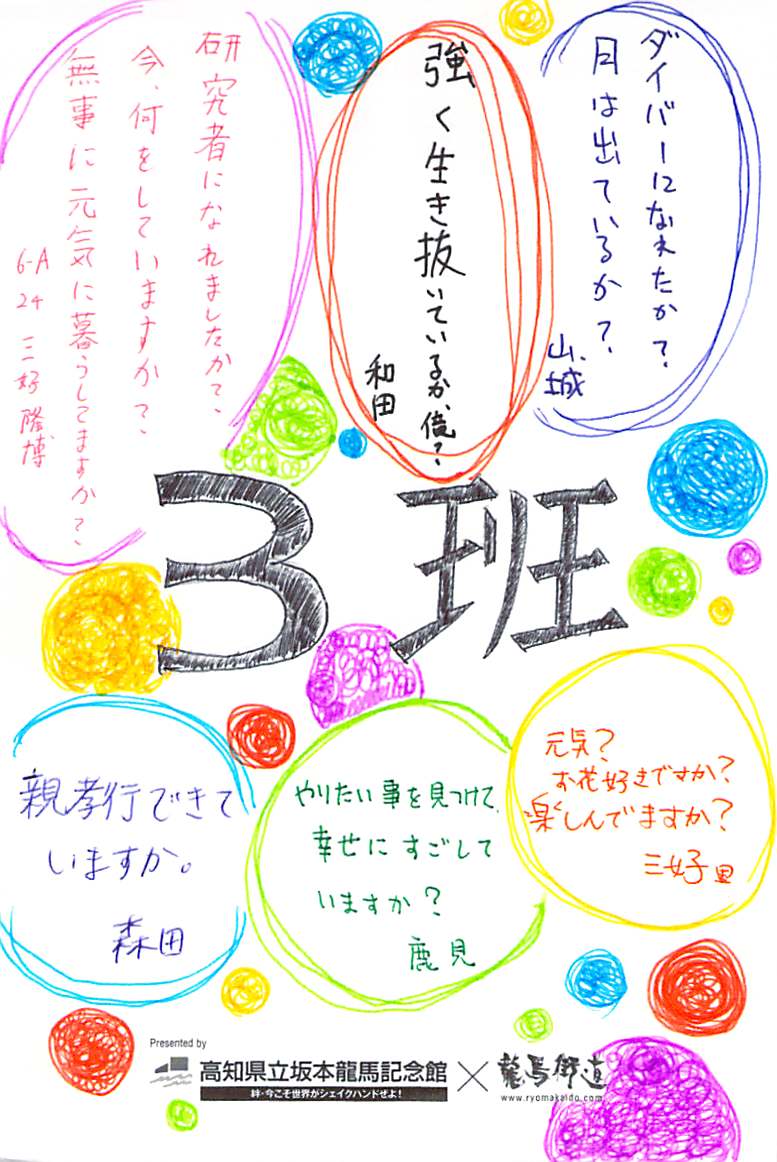 ダイバーになれたか?
月は出ているか?
山城
強く生き抜いているか、俺?
和田
研究者になれましたか?
今、何をしていますか?
無事に元気に暮らしてますか?
6-A
24 三好 隆博
3班
親孝行できて
いますか。
森田
やりたい事を見つけて、
幸せにすごして
いますか?
鹿見
元気?
お花好きですか?
楽しんでますか?
三好 里
Presented by
高知県立坂本龍馬記念館
絆・今こそ世界がシェイクハンドせよ!
×
龍馬街道
www.ryomakaido.com